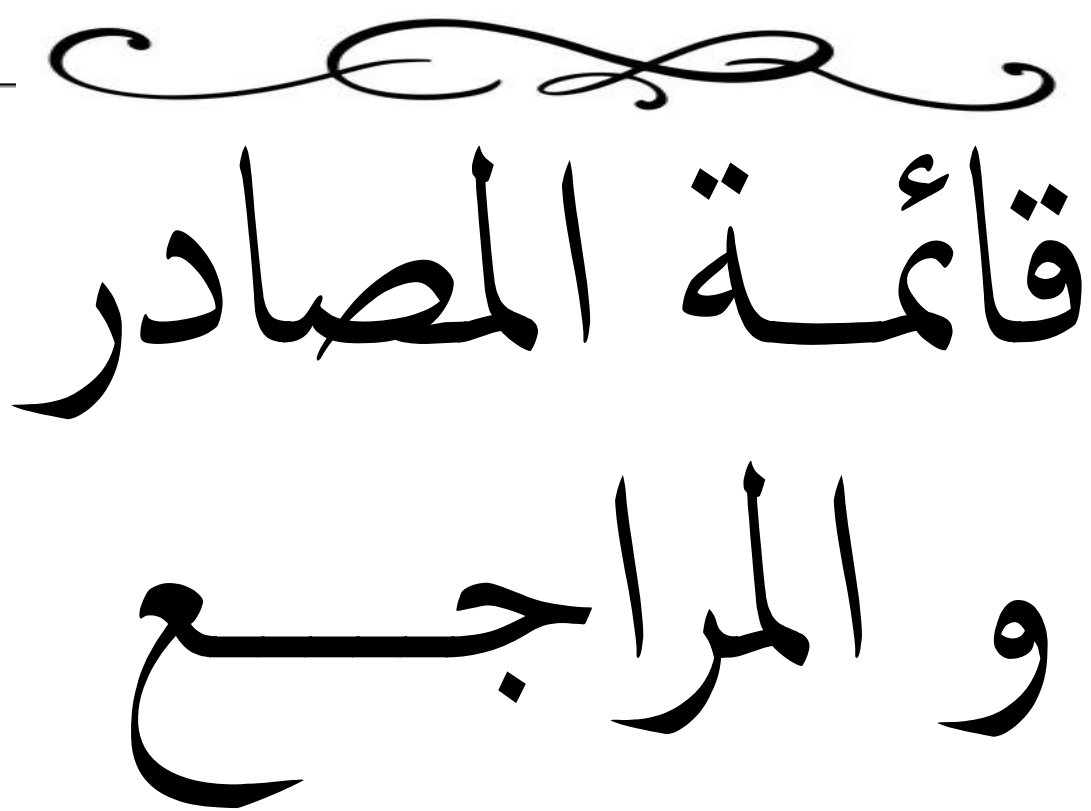 قائمة المصادر
و المراجع